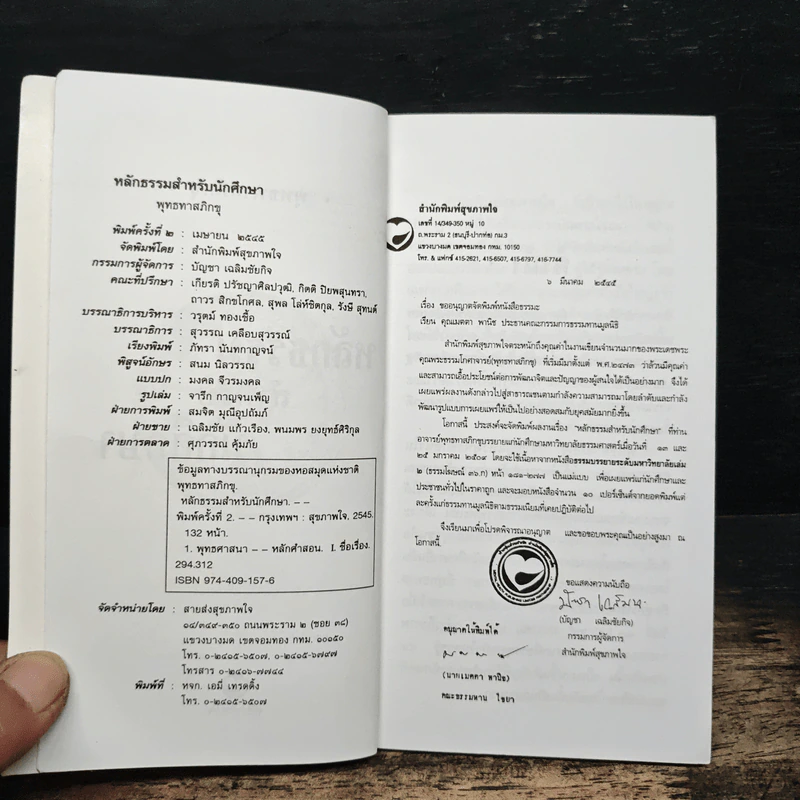 หลักธรรมสำหรับนักศึกษา
พุทธทาสภิกขุ
พิมพ์ครั้งที่ ๒ : เมษายน ๒๕๔๕
จัดพิมพ์โดย : สำนักพิมพ์สุขภาพใจ
กรรมการผู้จัดการ : บัญชา เฉลิมชัยกิจ
คณะที่ปรึกษา : เกียรติ ปรัชญาศิลปวุฒิ, กิตติ ปิยพสุนทรา,
ถาวร สิกขโกศล, สุพล โล่ห์ชิตกุล, รังษี สุทนต์
บรรณาธิการบริหาร : วรุตม์ ทองเชื้อ
บรรณาธิการ : สุวรรณ เคลือบสุวรรณ์
เรียงพิมพ์ : ภัทรา นันทกาญจน์
พิสูจน์อักษร : สนม นิลวรรณ
แบบปก : มงคล จีวรมงคล
รูปเล่ม : จารึก กาญจนเพ็ญ
ฝ่ายการพิมพ์ : สมจิต มุณีอุปถัมภ์
ฝ่ายขาย : เฉลิมชัย แก้วเรือง, พนมพร ยงยุทธ์ศิริกุล
ฝ่ายการตลาด : ศุภวรรณ คุ้มภัย
ข้อมูลทางบรรณานุกรมของหอสมุดแห่งชาติ
พุทธทาสภิกขุ.
หลักธรรมสำหรับนักศึกษา. – –
พิมพ์ครั้งที่ 2. – – กรุงเทพฯ : สุขภาพใจ, 2545.
132 หน้า.
1. พุทธศาสนา – – หลักคำสอน. I. ชื่อเรื่อง.
294.312
ISBN 974-409-157-6
จัดจำหน่ายโดย : สายส่งสุขภาพใจ
๑๔/๓๔๙-๓๕๐ ถนนพระราม ๒ (ซอย ๓๘)
แขวงบางมด เขตจอมทอง กทม. ๑๐๑๕๐
โทร. ๐-๒๔๑๕-๖๕๐๗, ๐-๒๔๑๕-๖๗๙๗
โทรสาร ๐-๒๔๑๖-๗๗๔๔
พิมพ์ที่ : หจก. เอมี่ เทรดดิ้ง
โทร. ๐-๒๔๑๕-๖๕๐๗
สำนักพิมพ์สุขภาพใจ
เลขที่ 14/349-350 หมู่ 10
ถ.พระราม 2 (ธนบุรี-ปากท่อ) กม.3
แขวงบางมด เขตจอมทอง กทม. 10150
โทร. & แฟกซ์ 415-2621, 415-6507, 415-6797, 416-7744
๖ มีนาคม ๒๕๔๕
เรื่อง ขออนุญาตจัดพิมพ์หนังสือธรรมะ
เรียน คุณเมตตา พานิช ประธานคณะกรรมการธรรมทานมูลนิธิ
สำนักพิมพ์สุขภาพใจตระหนักถึงคุณค่าในงานเขียนจำนวนมากของพระเดชพระ
คุณพระธรรมโกศาจารย์(พุทธทาสภิกขุ) ที่เริ่มมีมาตั้งแต่ พ.ศ.๒๔๗๓ ว่าล้วนมีคุณค่า
และสามารถเอื้อประโยชน์ต่อการพัฒนาจิตและปัญญาของผู้สนใจได้เป็นอย่างมาก จึงได้
เผยแพร่ผลงานดังกล่าวไปสู่สาธารณชนตามกำลังความสามารถมาโดยลำดับและกำลัง
พัฒนารูปแบบการเผยแพร่ให้เป็นไปอย่างสอดสมกับยุคสมัยมากยิ่งขึ้น
โอกาสนี้ ประสงค์จะจัดพิมพ์ผลงานเรื่อง "หลักธรรมสำหรับนักศึกษา" ที่ท่าน
อาจารย์พุทธทาสภิกขุบรรยายแก่นักศึกษามหาวิทยาลัยธรรมศาสตร์เมื่อวันที่ ๑๓ และ
๒๕ มกราคม ๒๕๐๙ โดยจะใช้เนื้อหาจากหนังสือธรรมบรรยายระดับมหาวิทยาลัยเล่ม
๒ (ธรรมโฆษณ์ ๓๖.ก) หน้า ๑๘๑-๒๗๗ เป็นแม่แบบ เพื่อเผยแพร่แก่นักศึกษาและ
ประชาชนทั่วไปในราคาถูก และจะมอบหนังสือจำนวน ๑๐ เปอร์เซ็นต์จากยอดพิมพ์แต่
ละครั้งแก่ธรรมทานมูลนิธิตามธรรมเนียมที่เคยปฏิบัติต่อไป
จึงเรียนมาเพื่อโปรดพิจารณาอนุญาต และขอขอบพระคุณเป็นอย่างสูงมา ณ
โอกาสนี้.
ขอแสดงความนับถือ
(บัญชา เฉลิมชัยกิจ)
กรรมการผู้จัดการ
สำนักพิมพ์สุขภาพใจ
อนุญาตให้พิมพ์ได้
(นายเมตตา พานิช)
คณะธรรมทาน ไชยา